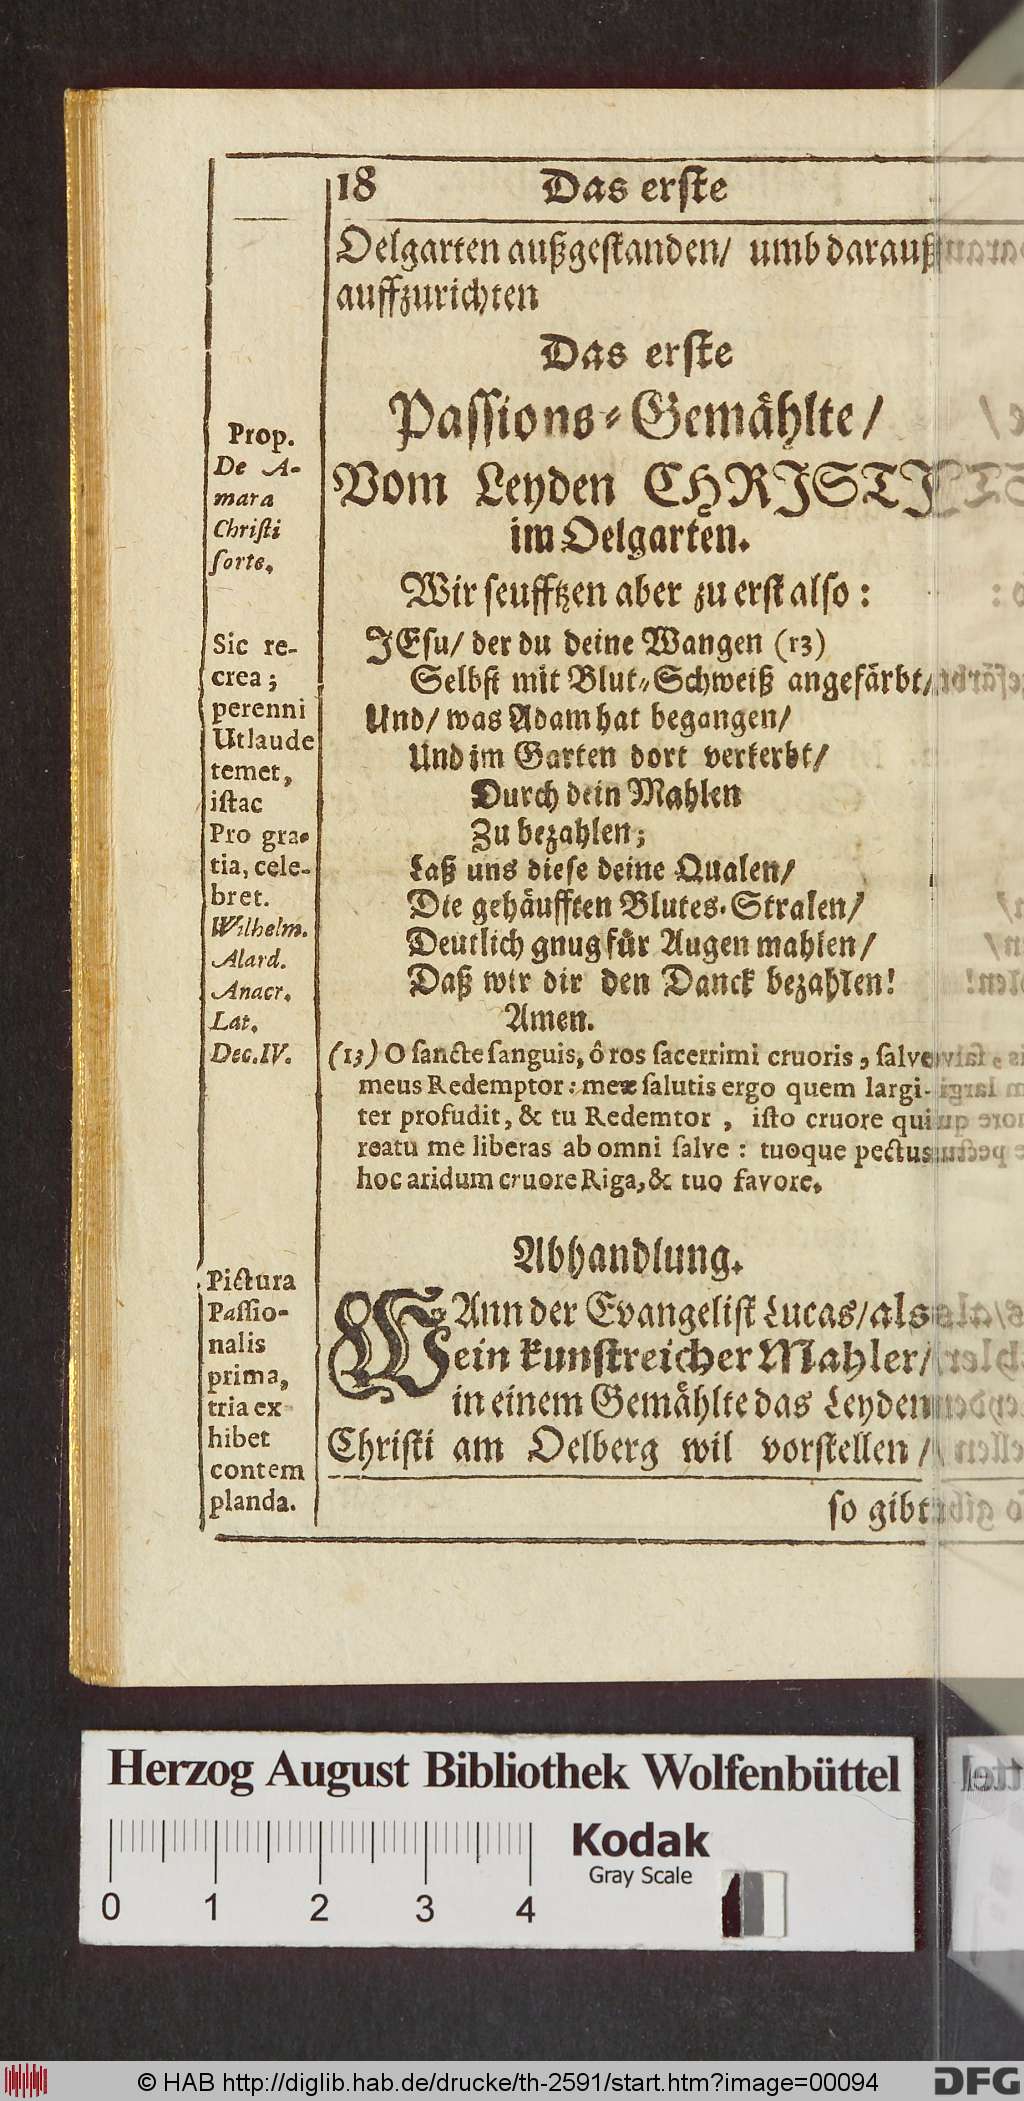 18 Das erste
Oelgarten außgestanden/ umb darauß
auffzurichten
Das erste
Passions-Gemåhlte/
Vom Leyden CHRISTI
im Oelgarten.
Wir seufftzen aber zu erst also:
JEsu/ der du deine Wangen (13)
Selbst mit Blut-Schweiß angefärbt/
Und/ was Adam hat begangen/
Und im Garten dort verkerbt/
Durch dein Mahlen
Zu bezahlen;
Laß uns diese deine Qualen/
Die gehäufften Blutes-Stralen/
Deutlich gnug für Augen mahlen/
Daß wir dir den Danck bezahlen!
Amen.
(13) O sancte sanguis, ô ros sacerrimi cruoris, salve
meus Redemptor: meæ salutis ergo quem largi-
ter profudit, & tu Redemtor, isto cruore qui
reatu me liberas ab omni salve: tuoque pectus
hoc aridum cruore Riga, & tuo favore.
Abhandlung.
WAnn der Evangelist Lucas/ als
ein kunstreicher Mahler/
in einem Gemåhlte das Leyden
Christi am Oelberg wil vorstellen/
so gibt
Prop.
De A-
mara
Christi
sorte.
Sic re-
crea;
perenni
Ut laude
temet,
istac
Pro gra-
tia, cele-
bret.
Wilhelm.
Alard.
Anacr.
Lat.
Dec. IV.
Pictura
Passio-
nalis
prima,
tria ex
hibet
contem
planda.
Herzog August Bibliothek Wolfenbüttel
Kodak
Gray Scale
0 1 2 3 4
© HAB http://diglib.hab.de/drucke/th-2591/start.htm?image=00094
DFG